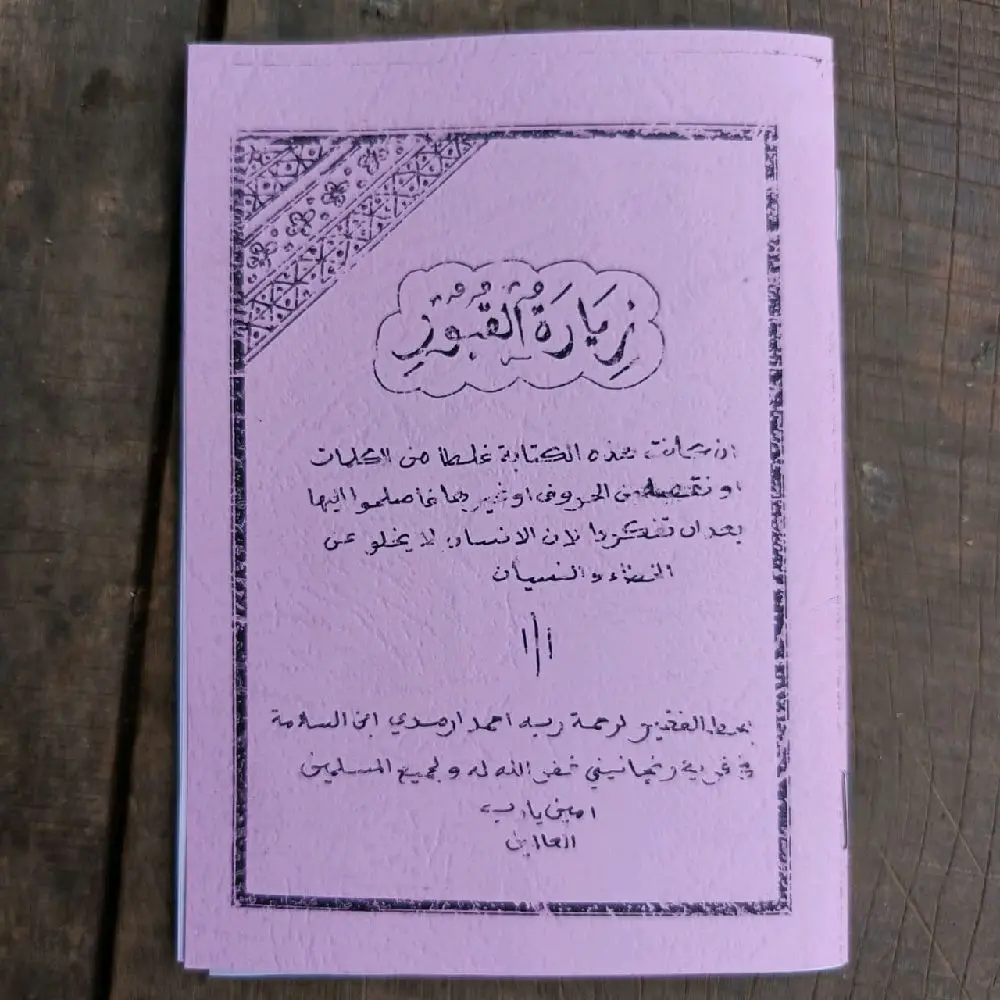 زِيَارَةُ الْقُبُوْرِ
ان كانت هذه الكتابة غلطا من الكلمات
او نقصا من الحروف او غيرهما فاصلحوا اليها
بعد ان تفكروا لان الانسان لا يخلو عن
الخطاء و النسيان
بخط الفقير لرحمة ربه احمد ارصدي ابن السلامة
في قرية غفر الله له ولجميع المسلمين
امين يا رب
العالمين